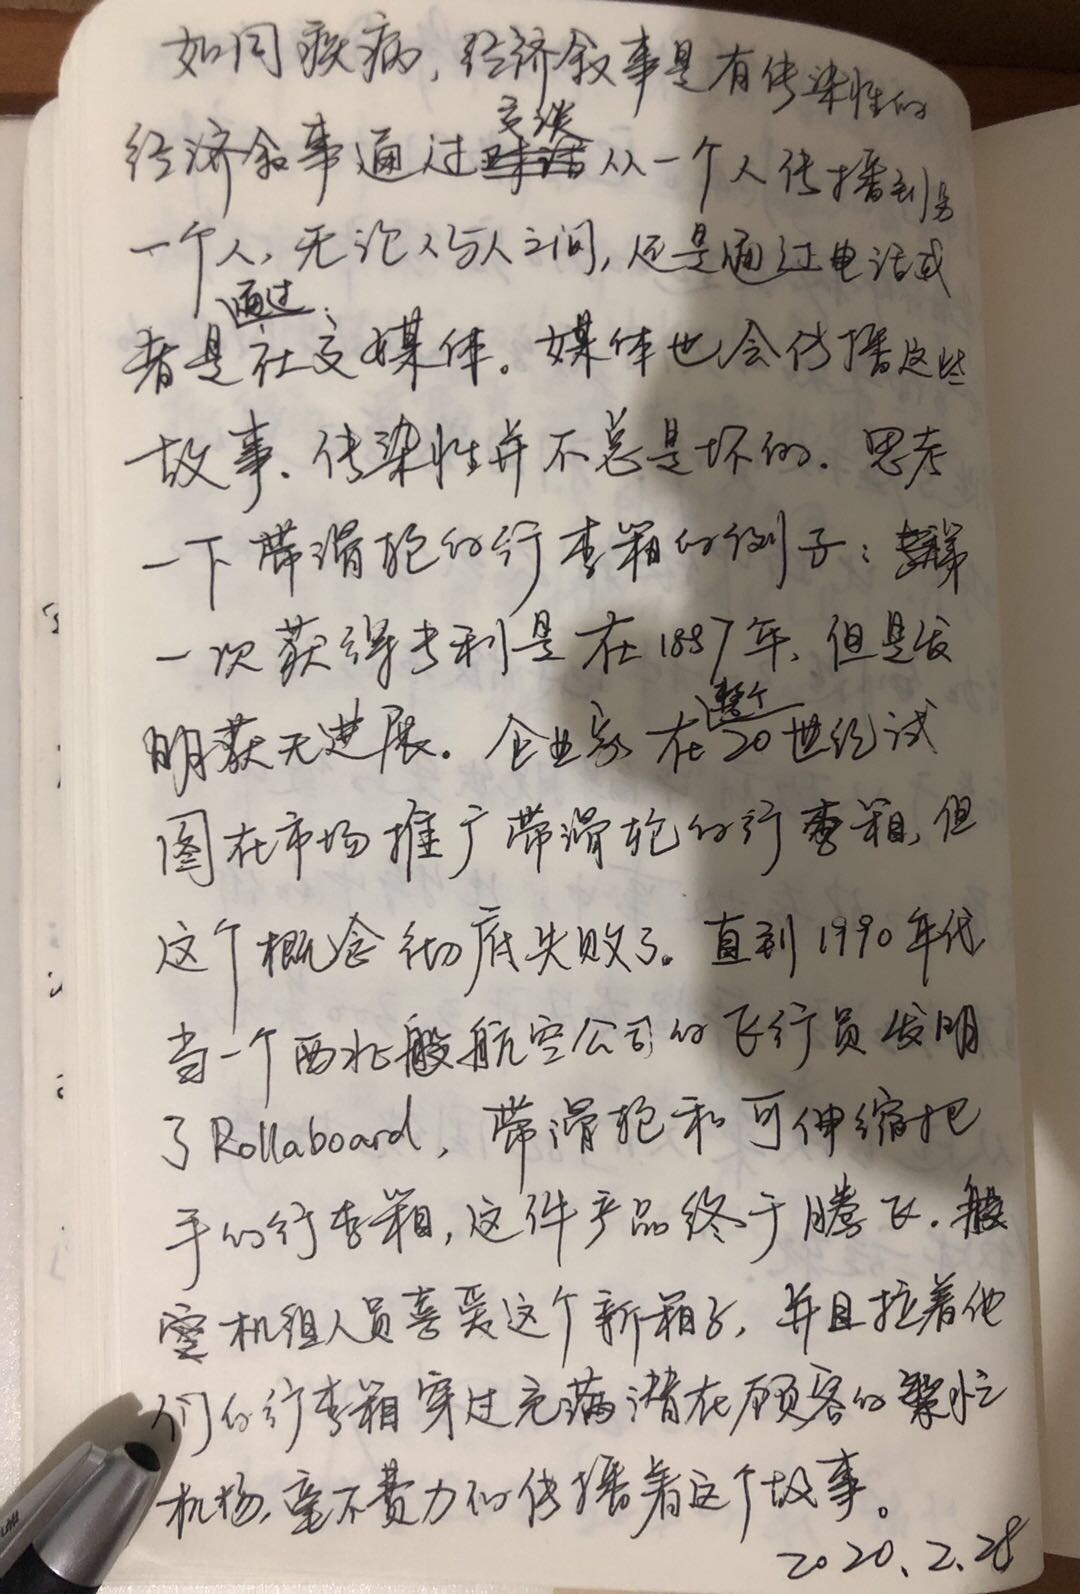 如同疾病，经济叙事是有传染性的
经济叙事通过交谈从一个人传播到另
一个人，无论人与人之间，还是通过电话或
者是通过社交媒体。媒体也会传播这些
故事。传染性并不总是坏的。思考
一下带滑轮的行李箱的例子：第
一次获得专利是在1887年，但是发
明获无进展。企业家在整个20世纪试
图在市场推广带滑轮的行李箱，但
这个概念彻底失败了。直到1990年代
当一个西北航空公司的飞行员发明
了Rollaboard，带滑轮和可伸缩把
手的行李箱，这件产品终于腾飞。航
空机组人员喜爱这个新箱子，并且拉着他
们的行李箱穿过充满潜在顾客的繁忙
机场，毫不费力的传播着这个故事。
2020.2.28